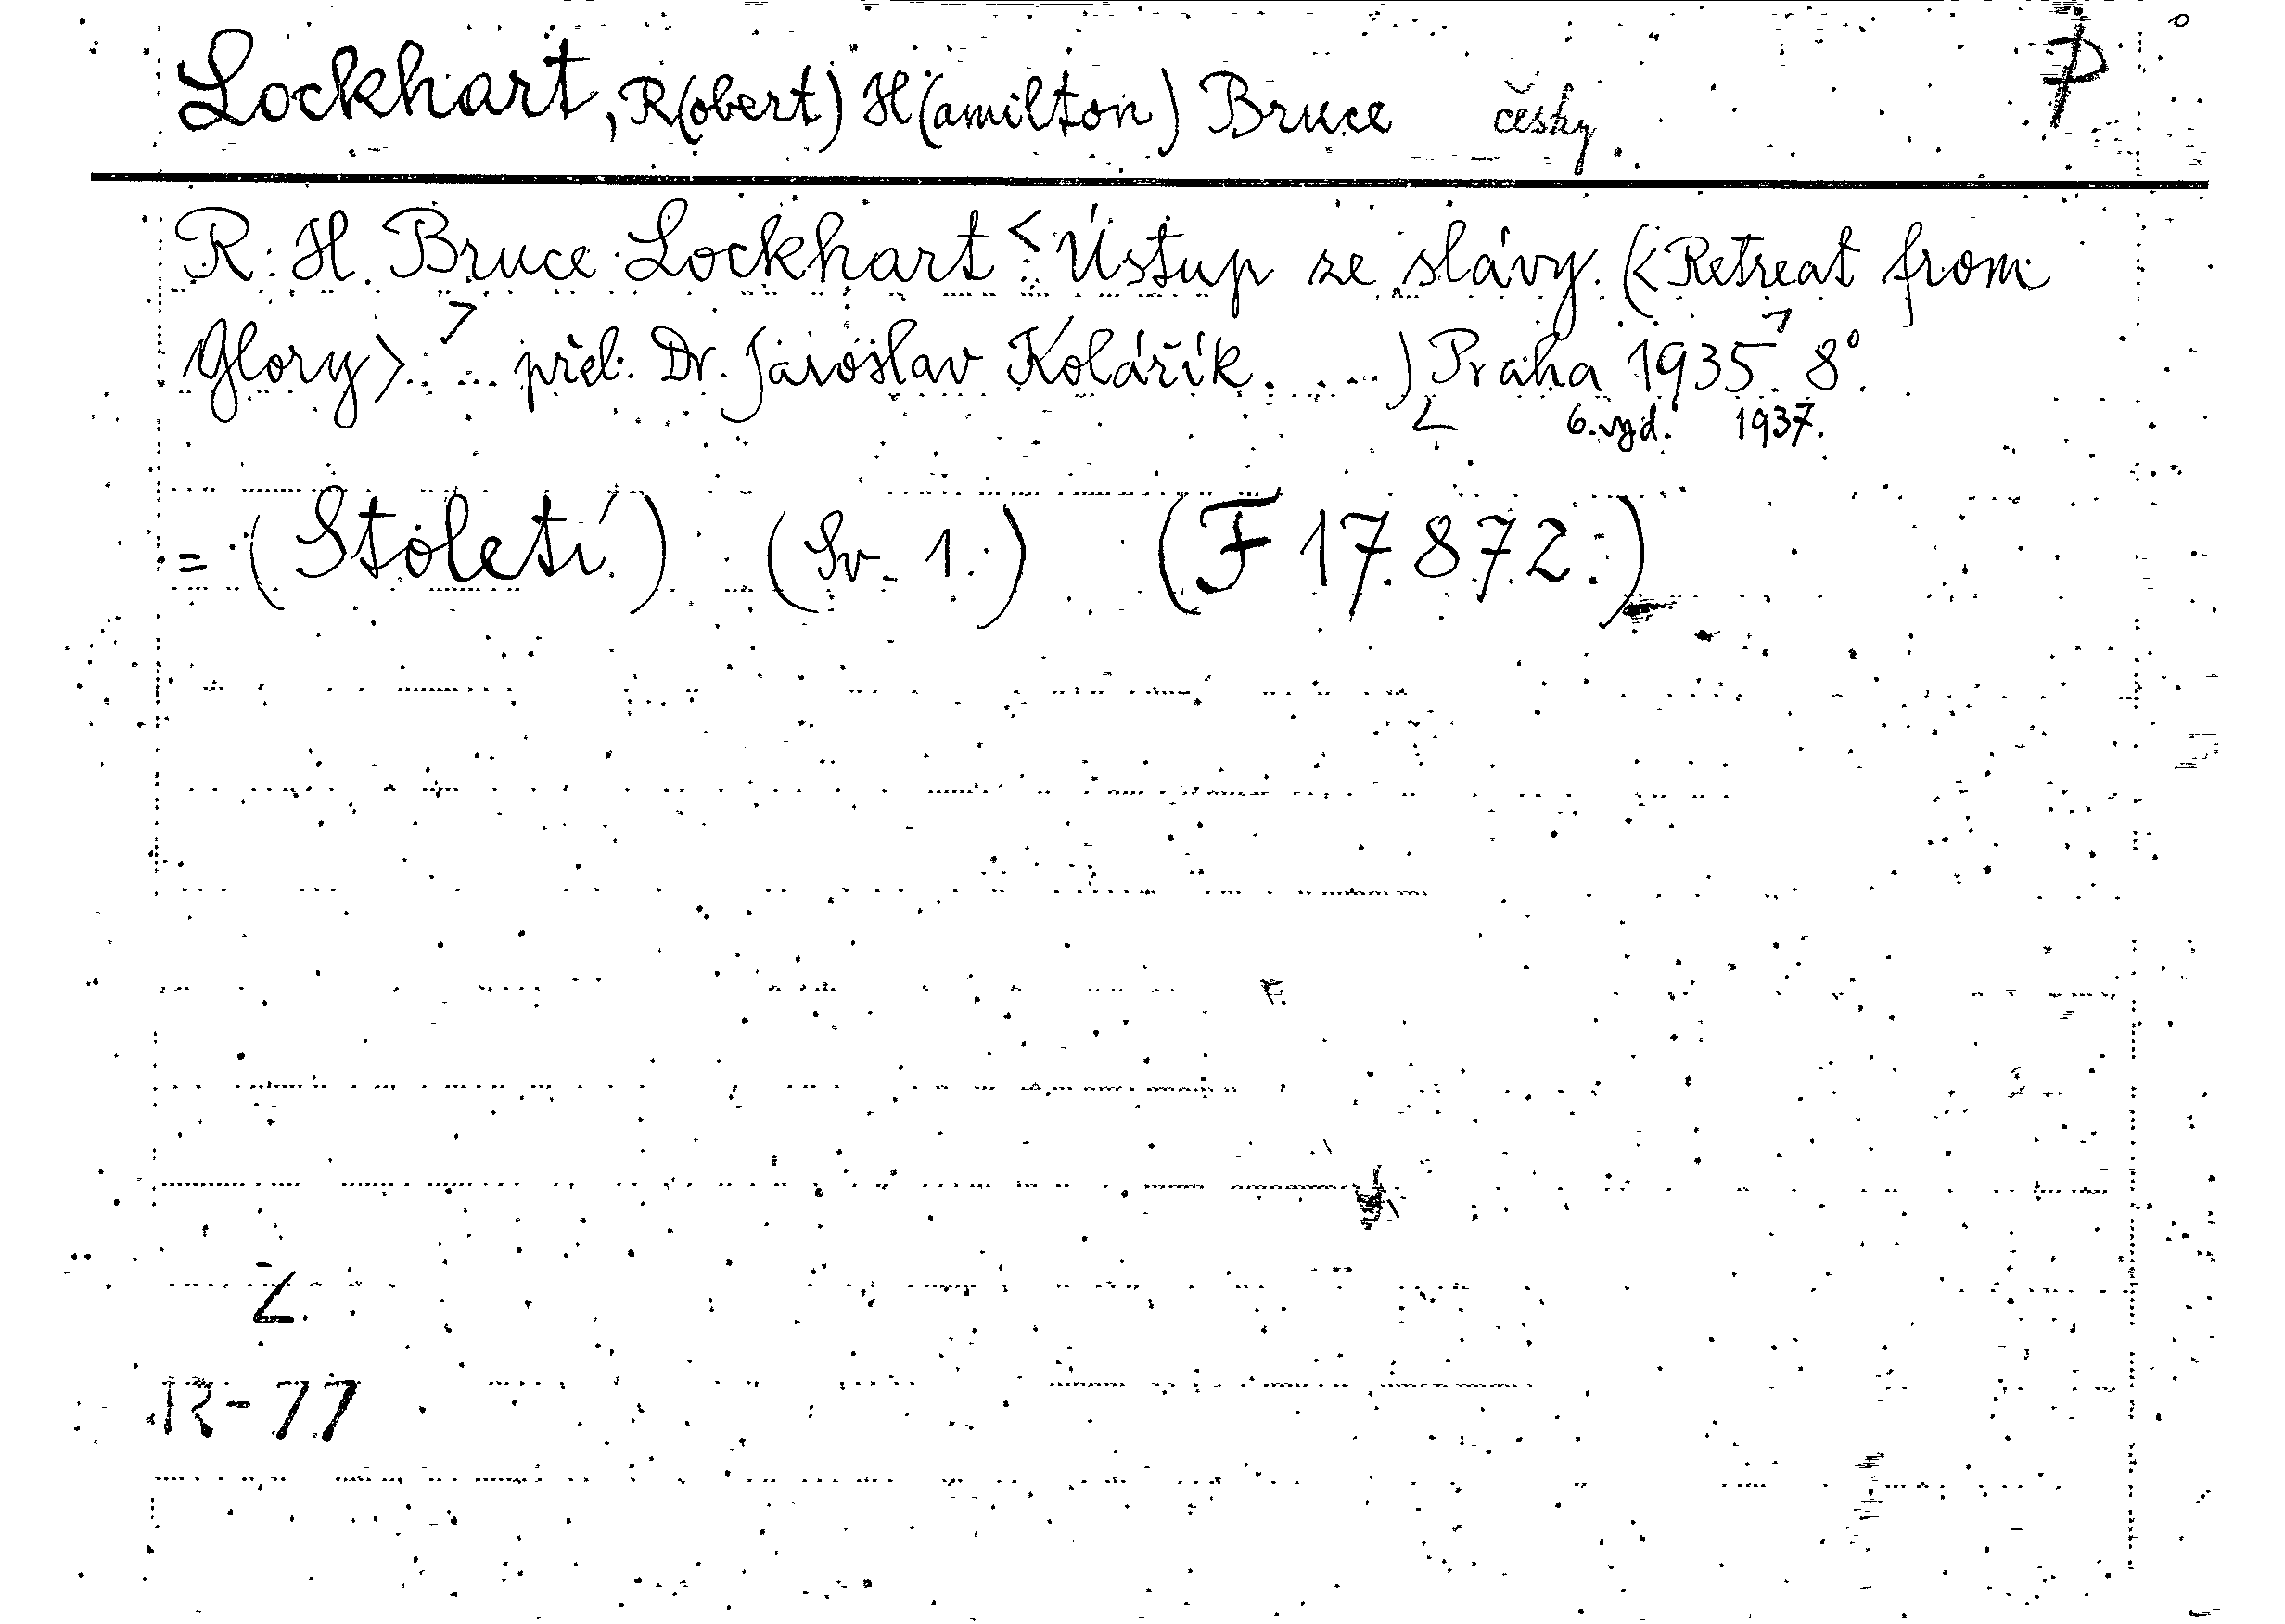 Lockhart, R(obert) H(amilton) Bruce česky
R. H. Bruce Lockhart < Ústup ze slávy. (<Retreat from
Glory>. > přel. Dr. Jaroslav Kolářík. ...) Praha 1935. 8°.
6. vyd. 1937.
= (Století) (Sv. 1.) (F 17.872.)
Z.
R-77